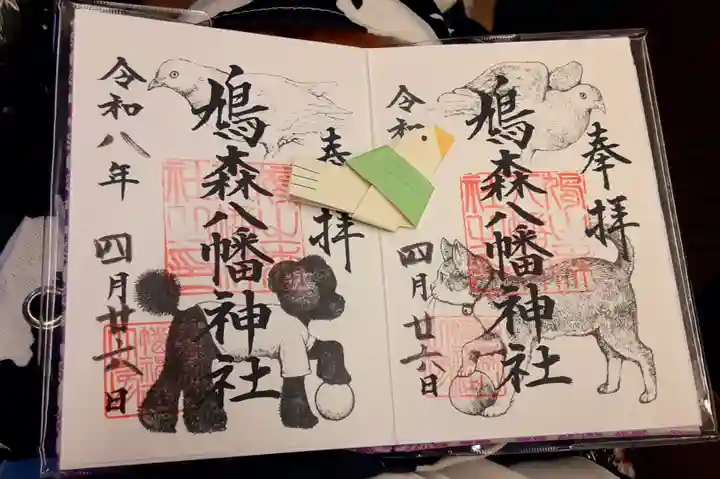 奉拝
鳩森八幡神社
令和
四月廿六日
拝
鳩森八幡神社
令和八年 四月廿六日